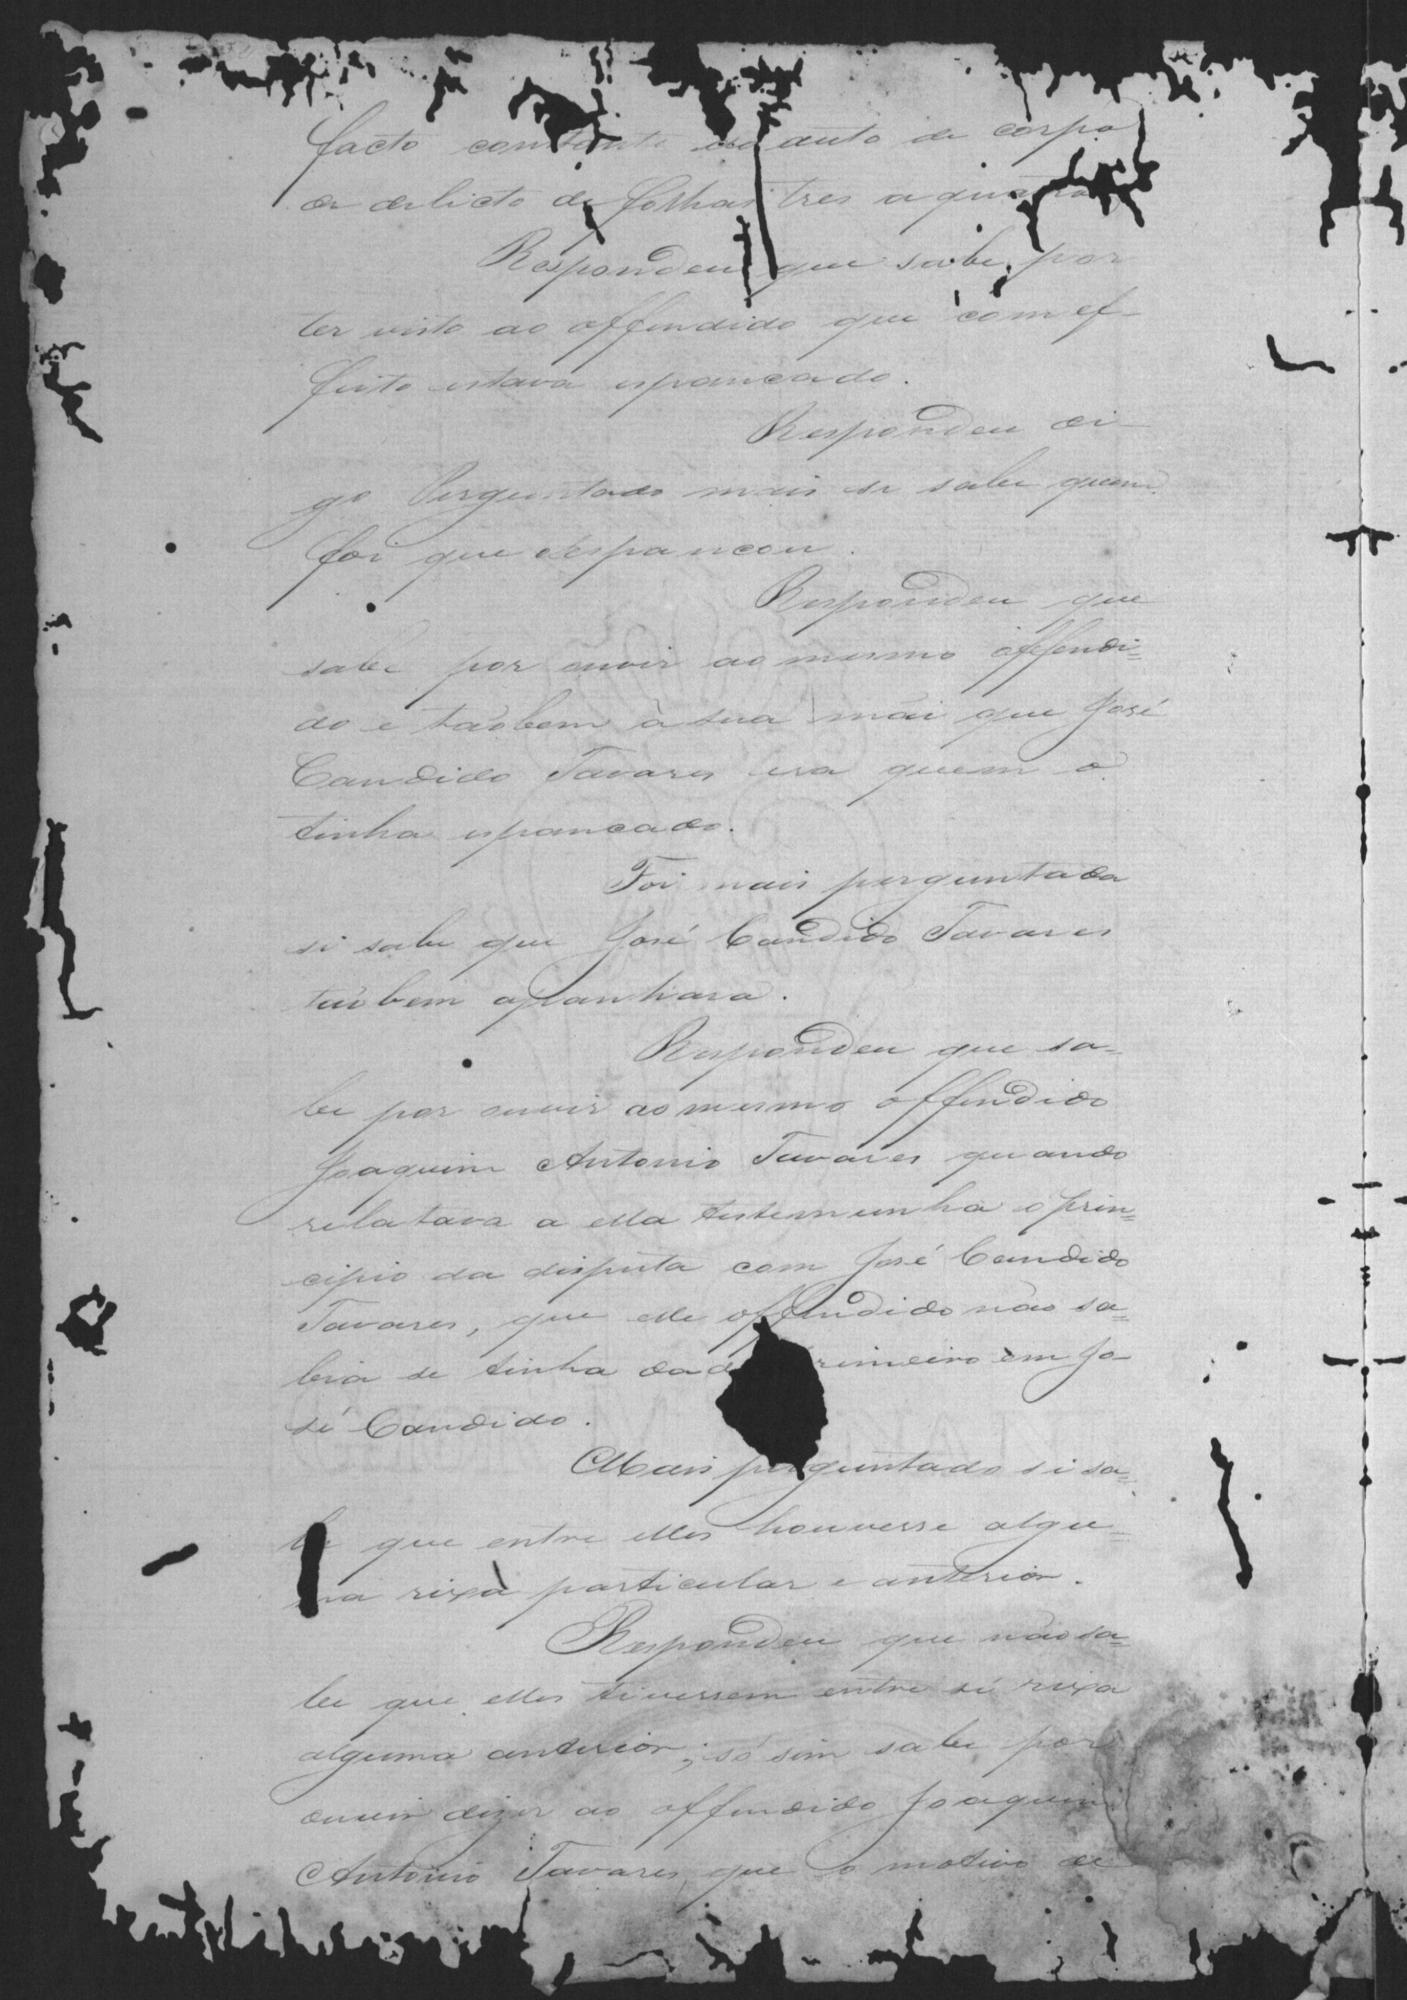 facto constante do auto de corpo
de delicto de folhas tres a quatro
Respondeu que sabe por
ter visto ao offendido que com ef-
feito estava espancado.
Respondeu di-
go Perguntado mais se sabe quem
foi que espancou.
Respondeu que
sabe por ouvir ao mesmo offendi=
do e taobem à sua mãi que José
Candido Tavares era quem o
tinha espancado.
Foi mais perguntada
si sabe que José Candido Tavares
taobem apanhara.
Respondeu que sa=
be por ouvir ao mesmo offendido
Joaquim Antonio Tavares quando
relatava a ella testemunha o prin=
cipio da disputa com José Candido
Tavares, que elle offendido não sa=
bia se tinha dado primeiro em Jo-
sé Candido.
Mais perguntado si sa=
be que entre elles houvesse algu=
ma rixa particular e anterior.
Respondeu que não sa=
be que elles tivessem entre si rixa
alguma anterior; só sim sabe por
ouvir dizer ao offendido Joaquim
Antonio Tavares, que o motivo de